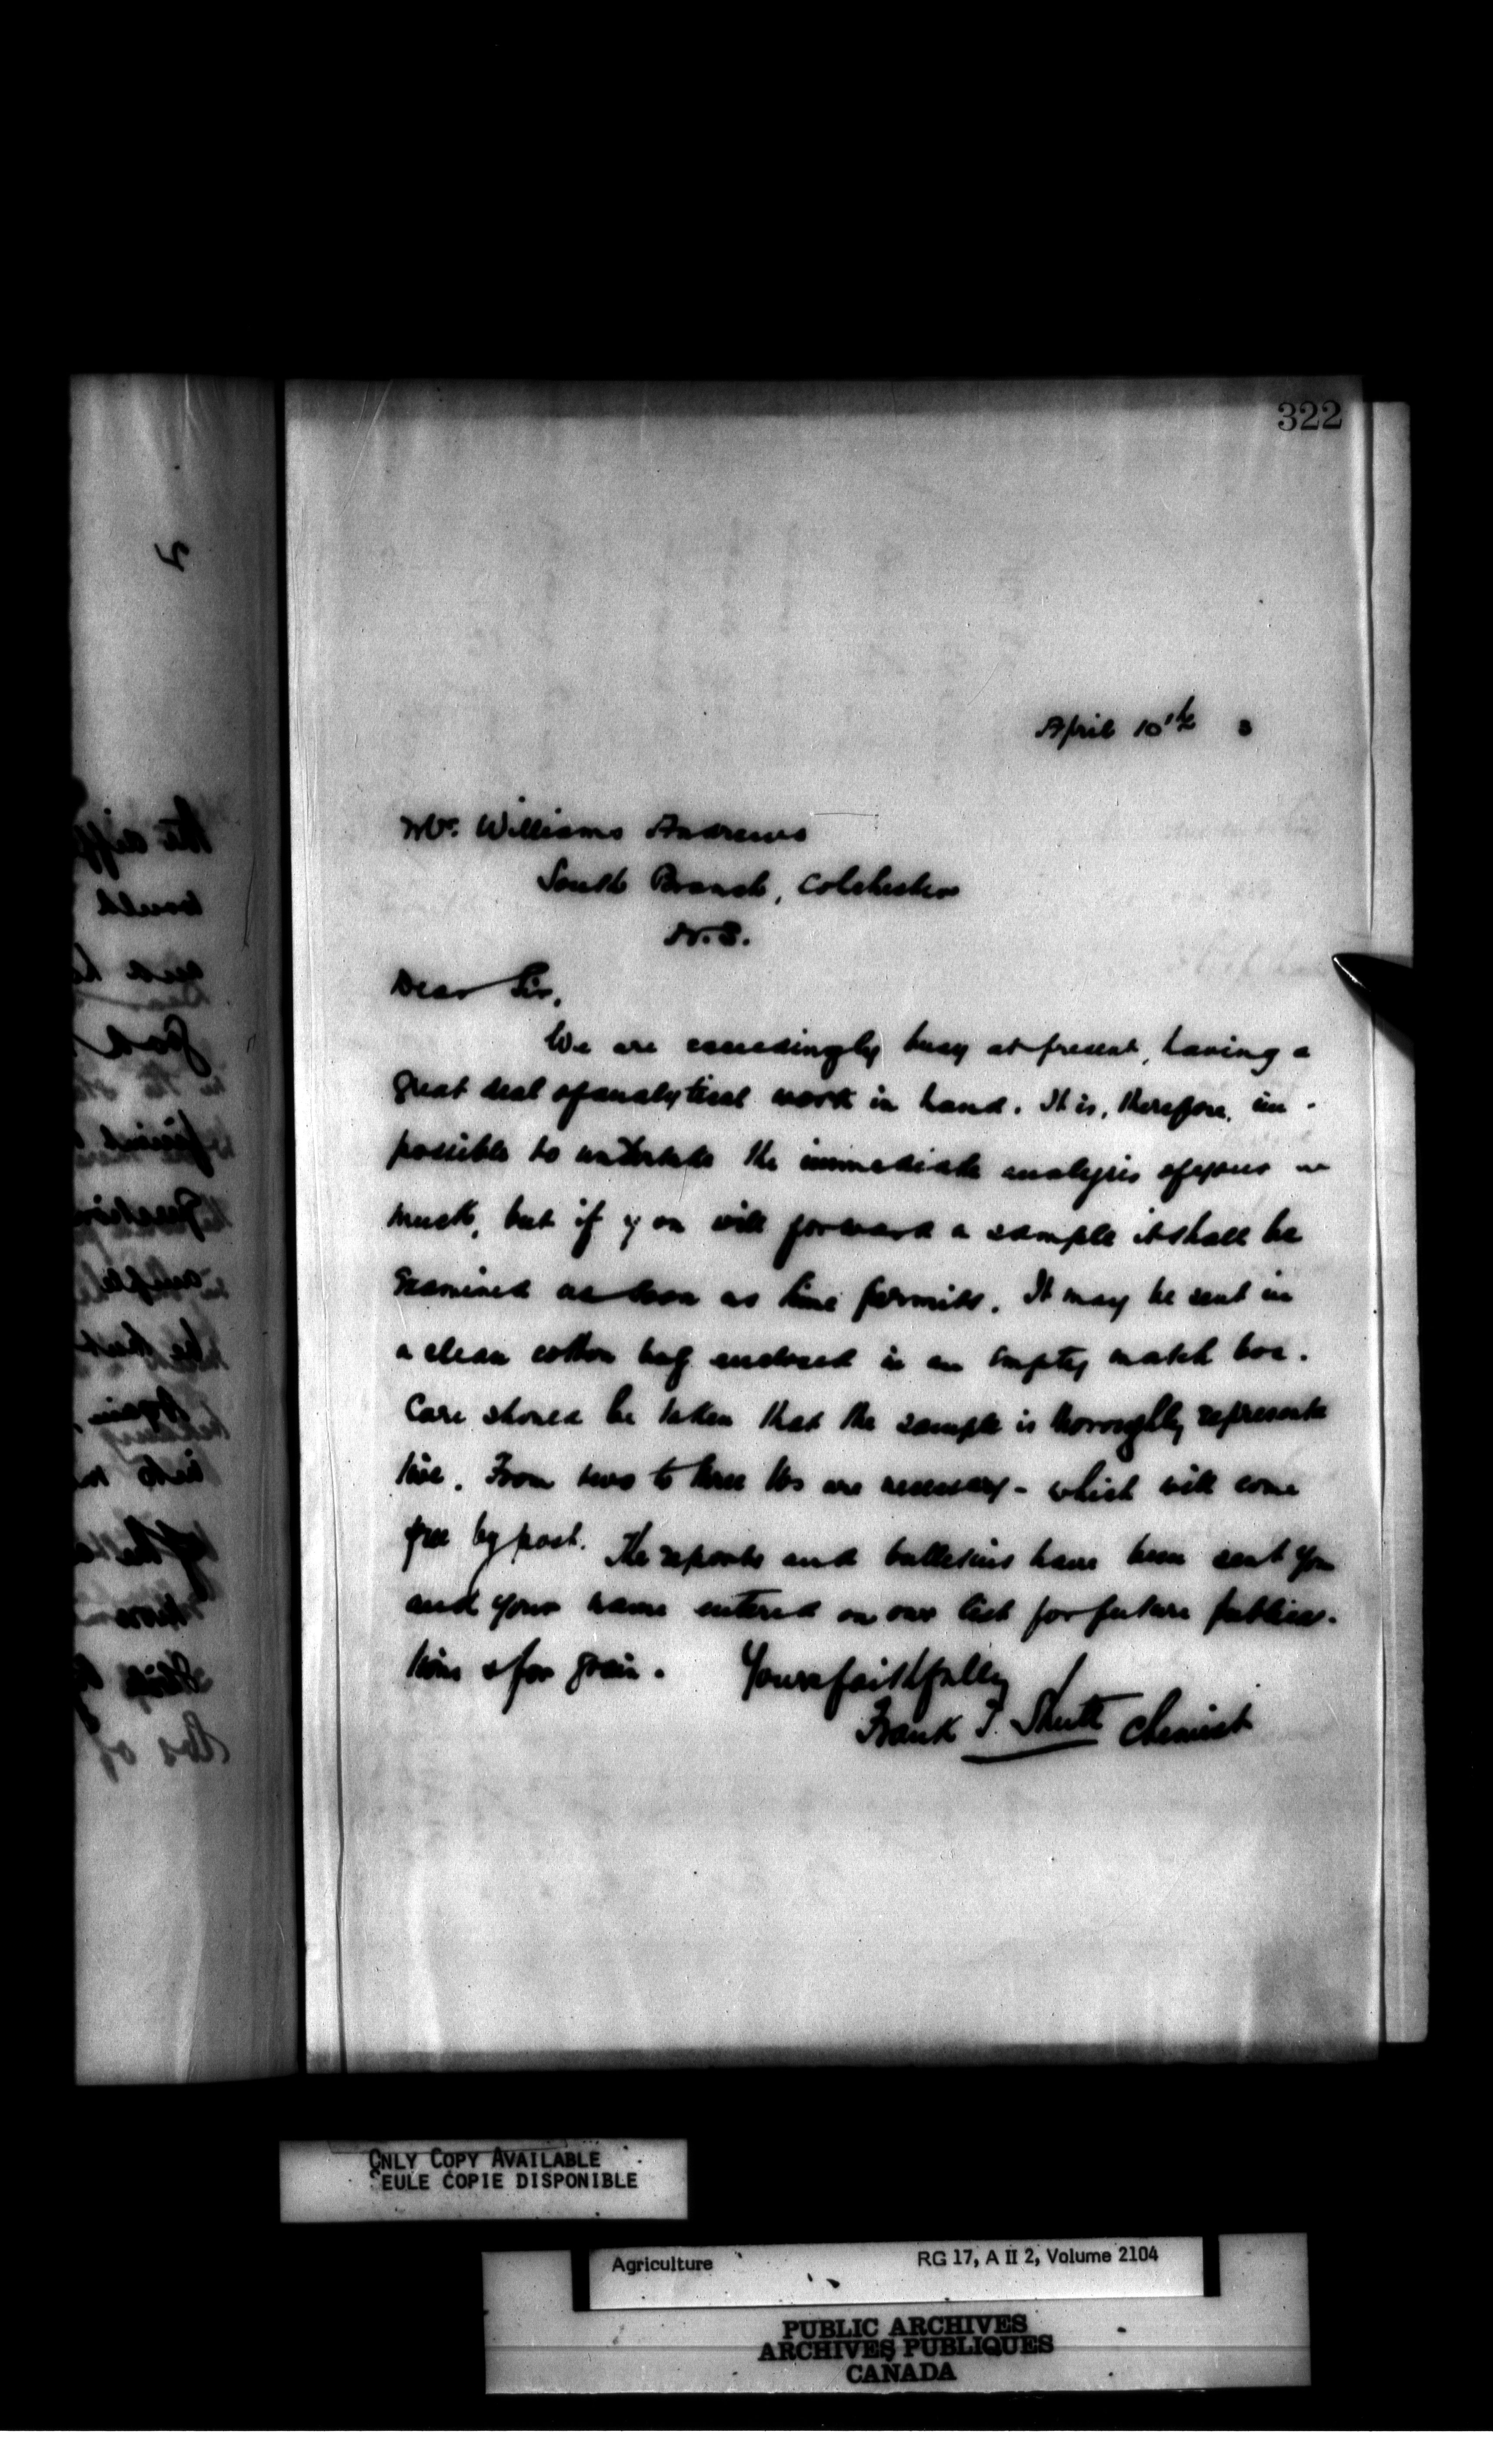 322
April 10th 3
Mr. Williams Andrews
South Branch, Colchester
N.S.
Dear Sir,
We are exceedingly busy at present, having a
great deal of analytical work in hand. It is, therefore, im-
possible to undertake the immediate analysis of your
muck, but if you will forward a sample it shall be
examined as soon as time permits. It may be sent in
a clean cotton bag enclosed in an empty match box.
Care should be taken that the sample is thoroughly representa
tive. From two to three lbs are necessary - which will come
free by post. The reports and bulletins have been sent you
and your name entered on our list for future publica-
tions & for grain. Yours faithfully
Frank T. Shutt Chemist
ONLY COPY AVAILABLE
SEULE COPIE DISPONIBLE
Agriculture RG 17, A II 2, Volume 2104
PUBLIC ARCHIVES
ARCHIVES PUBLIQUES
CANADA